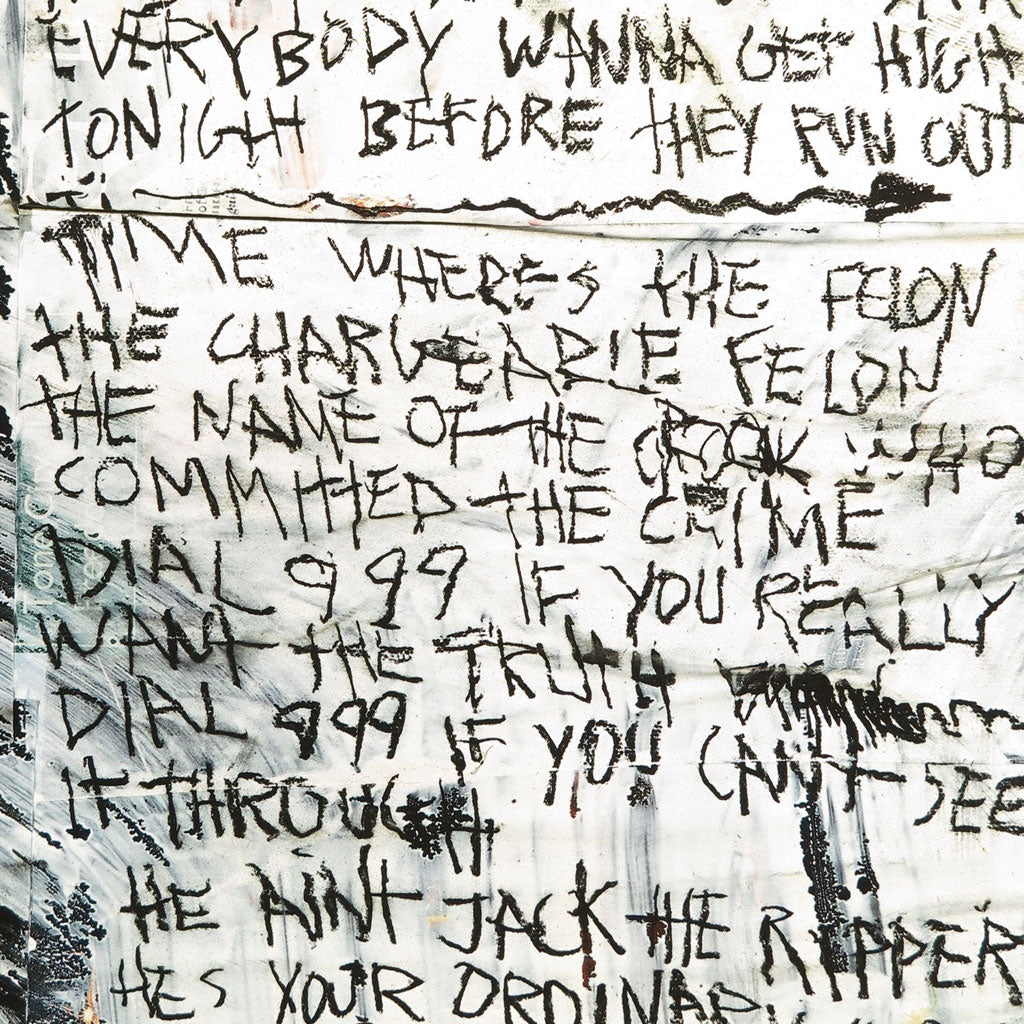 EVERYBODY WANNA GET HIGH
TONIGHT BEFORE THEY RUN OUT
TIME WHERES THE FELON
THE CHARGEABLE FELON
THE NAME OF THE CROOK WHO
COMMITTED THE CRIME
DIAL 999 IF YOU REALLY
WANT THE TRUTH
DIAL 999 IF YOU CANT SEE
IT THROUGH
HE AINT JACK THE RIPPER
HES YOUR ORDINARY